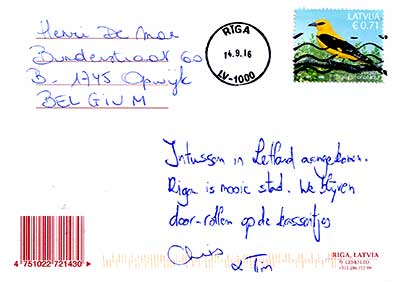 Henri De Mae
Bunderstraat 60
B- 1745 Opwijk
BELGIUM
RIGA
14.9.16
LV-1000
LATVIJA
€ 0.71
Intussen in Letland aangekomen.
Riga is mooie stad. We blijven
door-rollen op de kasseitjes
Chris
& Tim
4 751022 721430 >
RIGA, LATVIA